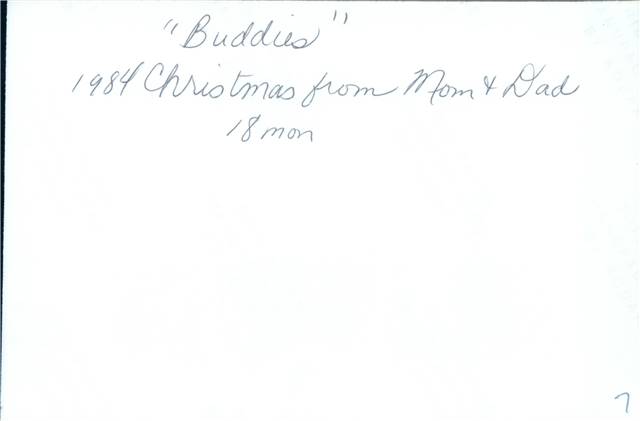 "Buddies"
1984 Christmas from Mom & Dad
18 mon
7